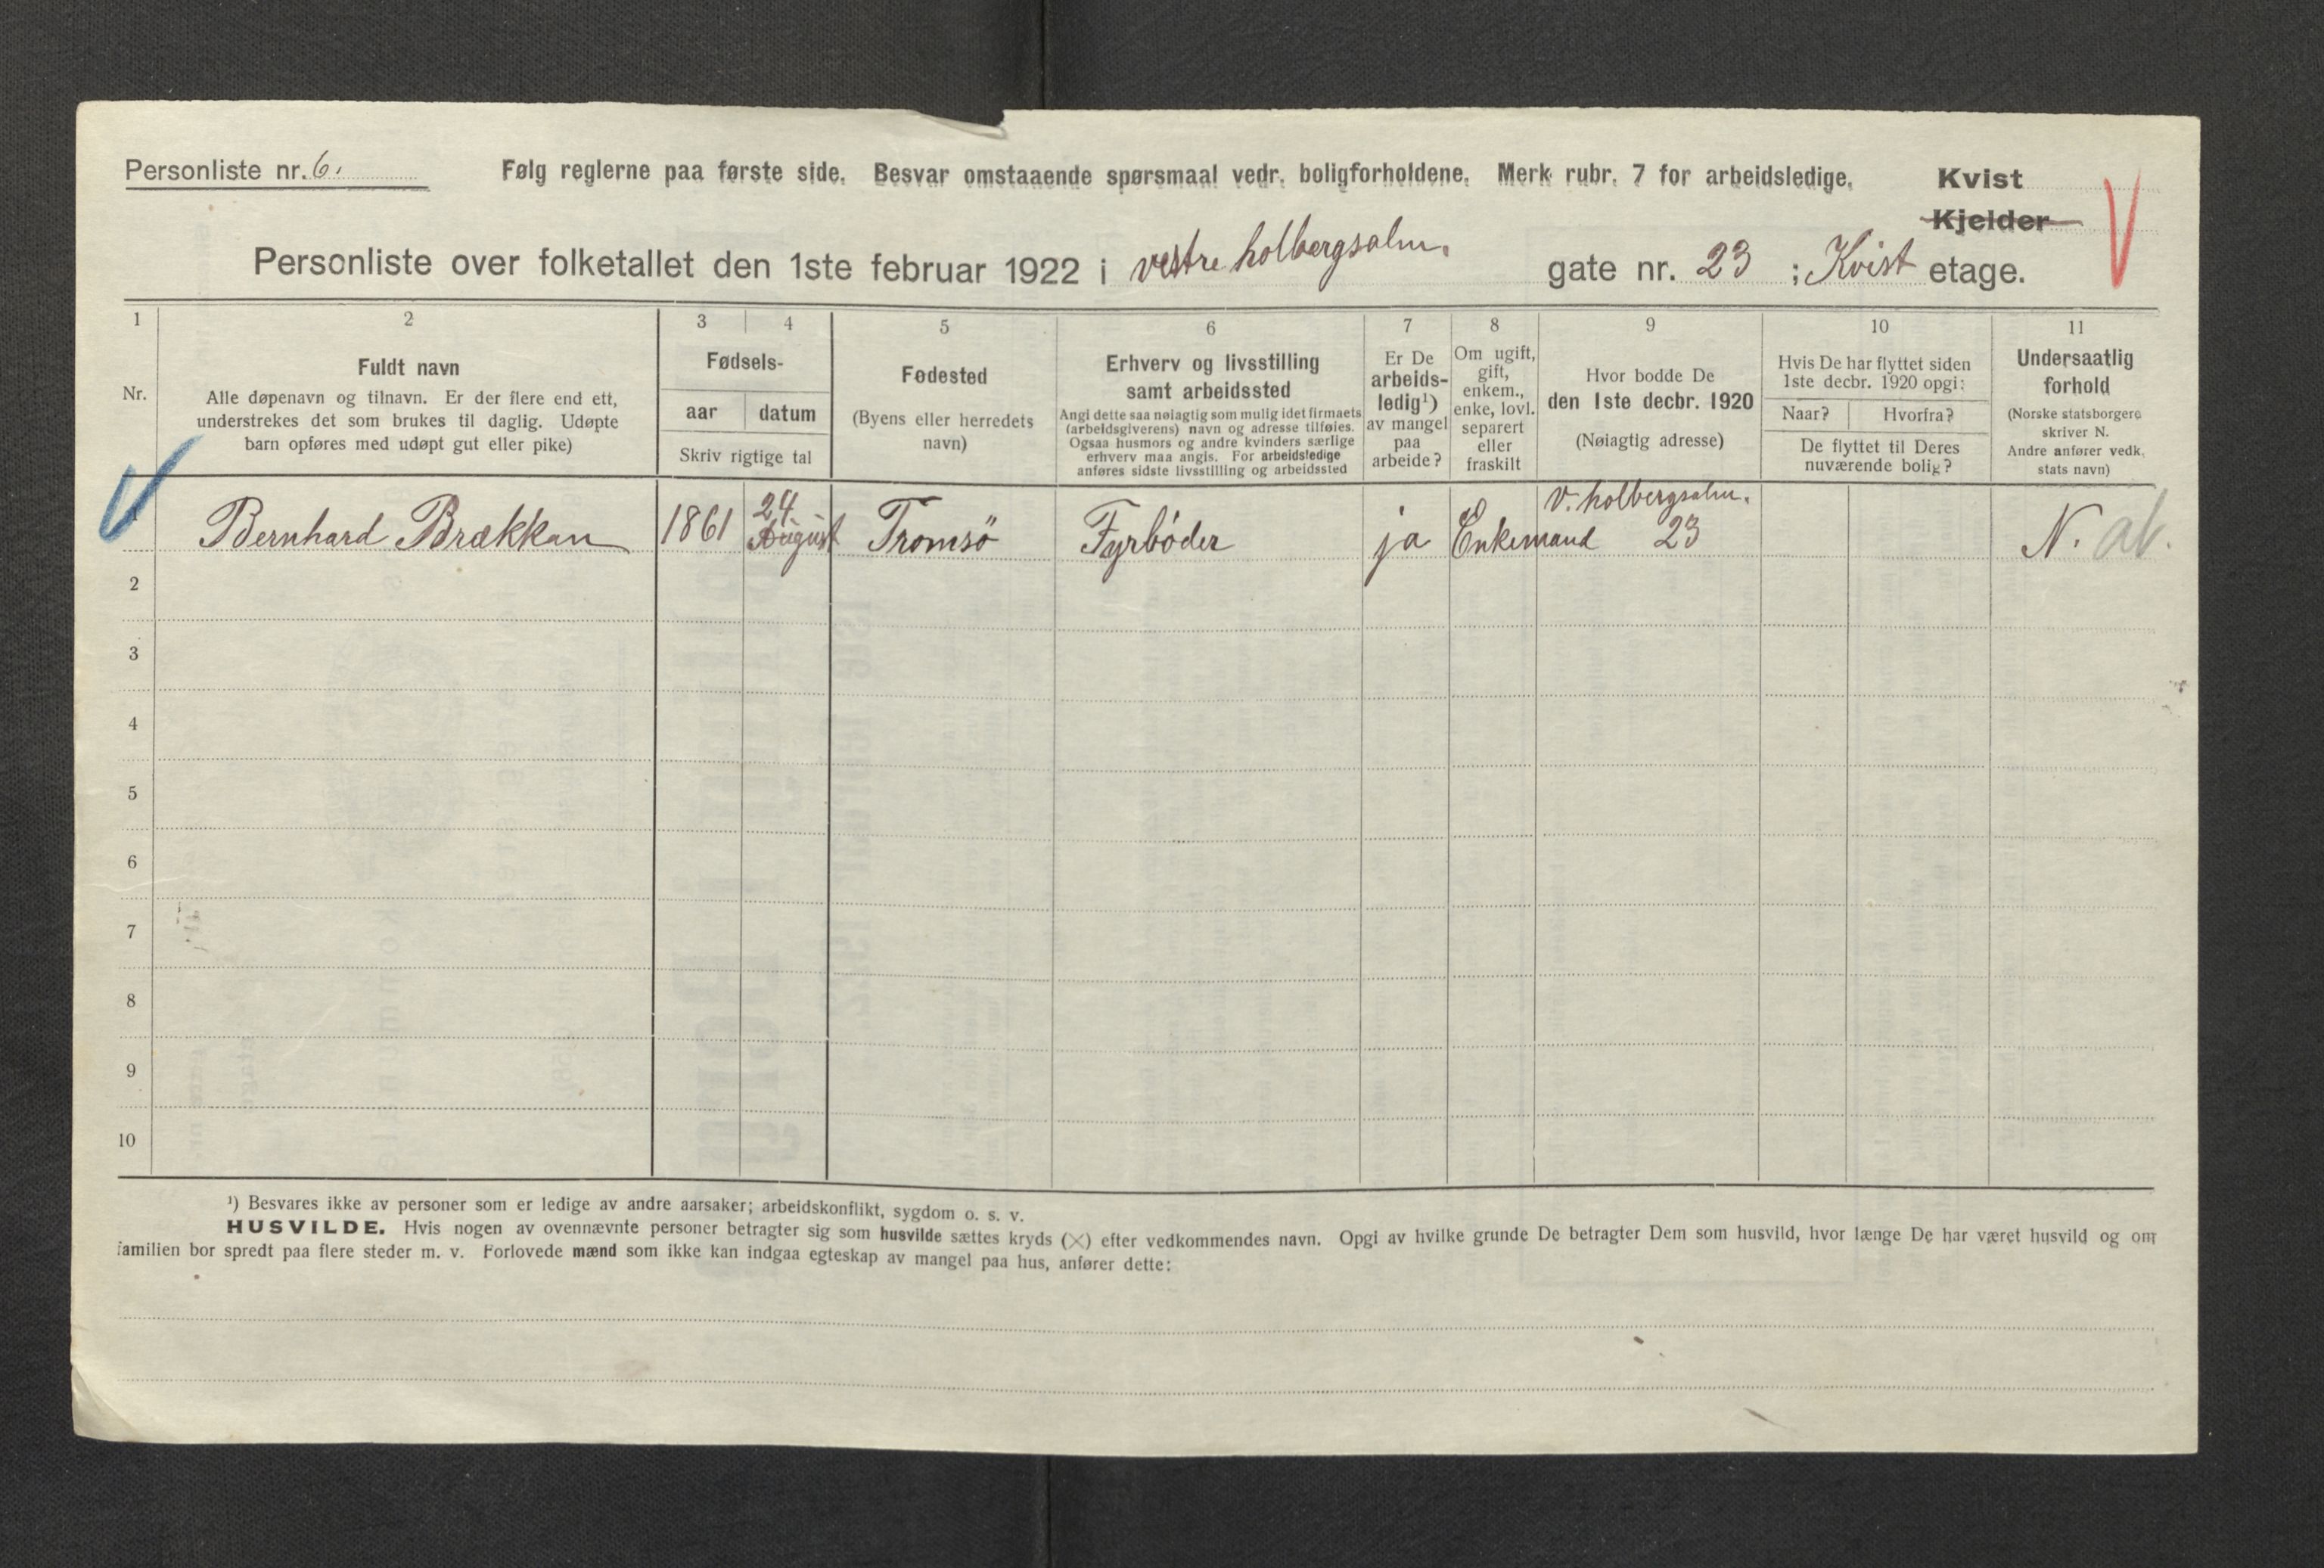 Personliste nr. 6.
Følg reglerne paa første side. Besvar omstaaende spørsmaal vedr. boligforholdene. Merk rubr. 7 for arbeidsledige.
Kvist
Kjelder
Personliste over folketallet den 1ste februar 1922 i vestre holbergsalm. gate nr. 23 ; Kvist etage.
1
Nr.
2
Fuldt navn
Alle døpenavn og tilnavn. Er der flere end ett,
understrekes det som brukes til daglig. Udøpte
barn opføres med udøpt gut eller pike)
3 4
Fødsels-
aar datum
Skriv rigtige tal
5
Fødested
(Byens eller herredets
navn)
6
Erhverv og livsstilling
samt arbeidssted
Angi dette saa nøiagtig som mulig idet firmaets
(arbeidsgiverens) navn og adresse tilføies.
Ogsaa husmors og andre kvinders særlige
erhverv maa angis. For arbeidsledige
anføres sidste livsstilling og arbeidssted
7
Er De
arbeids-
ledig¹)
av mangel
paa
arbeide?
8
Om ugift,
gift,
enkem.,
enke, lovl.
separert
eller
fraskilt
9
Hvor bodde De
den 1ste decbr. 1920
(Nøiagtig adresse)
10
Hvis De har flyttet siden
1ste decbr. 1920 opgi:
Naar? Hvorfra?
De flyttet til Deres
nuværende bolig?
11
Undersaatlig
forhold
(Norske statsborgere
skriver N.
Andre anfører vedk.
stats navn)
Bernhard Brækkan 1861 24 August Tromsö Fyrböder ja Enkemand v. holbergsalm. 23 N. ab.
2
3
4
5
6
7
8
9
10
¹) Besvares ikke av personer som er ledige av andre aarsaker; arbeidskonflikt, sygdom o. s. v.
HUSVILDE. Hvis nogen av ovennævnte personer betragter sig som husvilde sættes kryds (×) efter vedkommendes navn. Opgi av hvilke grunde De betragter Dem som husvild, hvor længe De har været husvild og om
familien bor spredt paa flere steder m. v. Forlovede mænd som ikke kan indgaa egteskap av mangel paa hus, anfører dette: